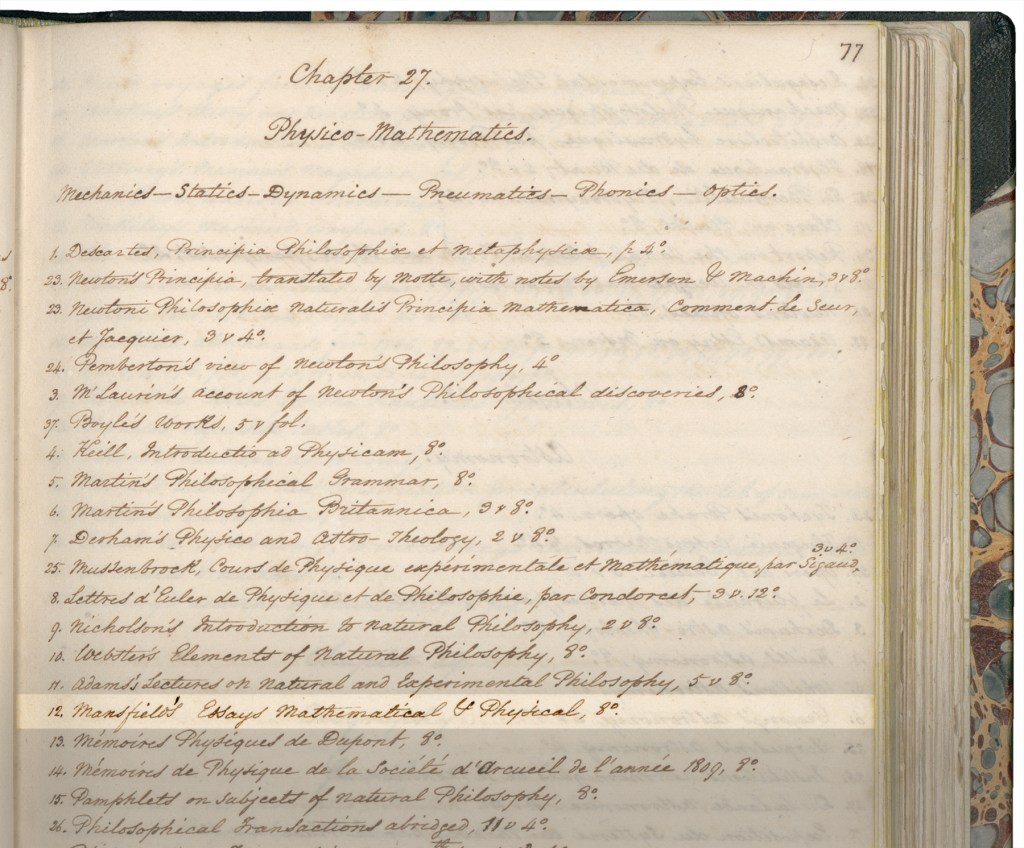 77
Chapter 27.
Physico-Mathematics.
Mechanics—Statics—Dynamics—Pneumatics—Phonics—Optics.
1. Descartes, Principia Philosophiæ et metaphysicæ, p 4º
23. Newton's Principia, translated by Motte, with notes by Emerson & Machin, 3 v 8º
23. Newtoni Philosophiæ Naturalis Principia Mathematica, Comment. Le Seur,
et Jacquier, 3 v 4º.
24. Pemberton's view of Newton's Philosophy, 4º
3. McLaurin's account of Newton's Philosophical discoveries, 8º.
37. Boyle's works, 5 v fol.
4. Keill, Introductio ad Physicam, 8º.
5. Martin's Philosophical Grammar, 8º.
6. Martin's Philosophia Britannica, 3 v 8º.
7. Derham's Physico and Astro-Theology, 2 v 8º.
3 v 4º.
25. Mussenbrock, Cours de Physique expérimentale et Mathématique, par Sigaud.
8. Lettres d'Euler de Physique et de Philosophie, par Condorcet, 3 v. 12º.
9. Nicholson's Introduction to Natural Philosophy, 2 v 8º.
10. Webster's Elements of Natural Philosophy, 8º.
11. Adams's Lectures on Natural and Experimental Philosophy, 5 v 8º.
12. Mansfield's Essays Mathematical & Physical, 8º.
13. Mémoires Physiques de Dupont, 8º.
14. Mémoires de Physique de la Société d'Arcueil de l'année 1809, 8º.
15. Pamphlets on subjects of Natural Philosophy, 8º.
26. Philosophical Transactions abridged, 11 v 4º.